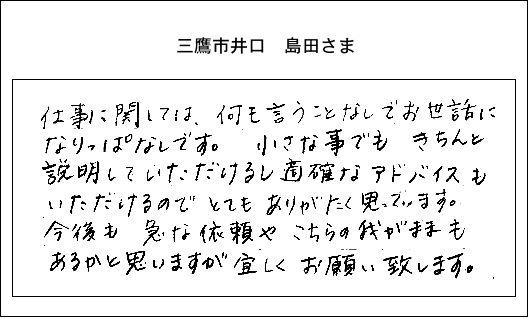 三鷹市井口　島田さま
仕事に関しては、何も言うことなしでお世話に
なりっぱなしです。　小さな事でも　きちんと
説明していただけるし適確なアドバイスも
いただけるので とても ありがたく思っています。
今後も　急な依頼や こちらの我がままも
あるかと思いますが宜しく お願い致します。